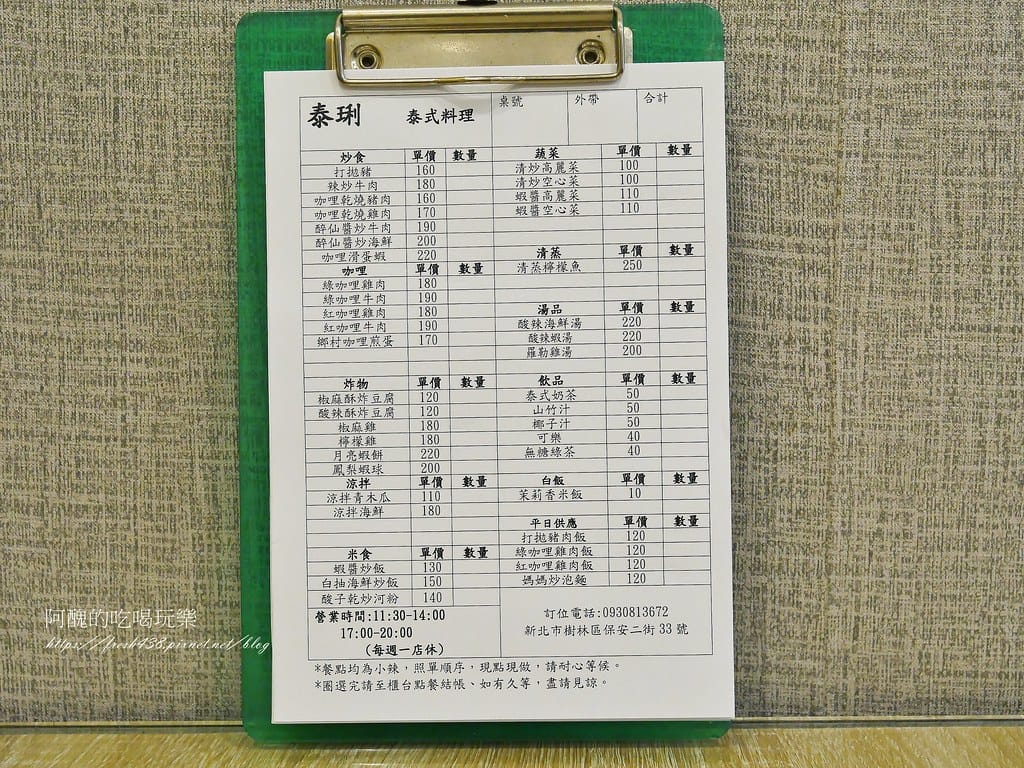 泰琍 泰式料理 桌號 外帶 合計
炒食 單價 數量
打拋豬 160
辣炒牛肉 180
咖哩乾燒豬肉 160
咖哩乾燒雞肉 170
醉仙醬炒牛肉 190
醉仙醬炒海鮮 200
咖哩滑蛋蝦 220
咖哩 單價 數量
綠咖哩雞肉 180
綠咖哩牛肉 190
紅咖哩雞肉 180
紅咖哩牛肉 190
鄉村咖哩煎蛋 170
炸物 單價 數量
椒麻酥炸豆腐 120
酸辣酥炸豆腐 120
椒麻雞 180
檸檬雞 180
月亮蝦餅 220
鳳梨蝦球 200
涼拌 單價 數量
涼拌青木瓜 110
涼拌海鮮 180
米食 單價 數量
蝦醬炒飯 130
白抽海鮮炒飯 150
酸子乾炒河粉 140
營業時間:11:30-14:00
17:00-20:00
(每週一店休)
蔬菜 單價 數量
清炒高麗菜 100
清炒空心菜 100
蝦醬高麗菜 110
蝦醬空心菜 110
清蒸 單價 數量
清蒸檸檬魚 250
湯品 單價 數量
酸辣海鮮湯 220
酸辣蝦湯 220
羅勒雞湯 200
飲品 單價 數量
泰式奶茶 50
山竹汁 50
椰子汁 50
可樂 40
無糖綠茶 40
白飯 單價 數量
茉莉香米飯 10
平日供應 單價 數量
打拋豬肉飯 120
綠咖哩雞肉飯 120
紅咖哩雞肉飯 120
媽媽炒泡麵 120
訂位電話:0930813672
新北市樹林區保安二街33號
*餐點均為小辣，照單順序，現點現做，請耐心等候。
*圈選完請至櫃台點餐結帳、如有久等，盡請見諒。
阿醜的吃喝玩樂
https://fresh438.pixnet.net/blog